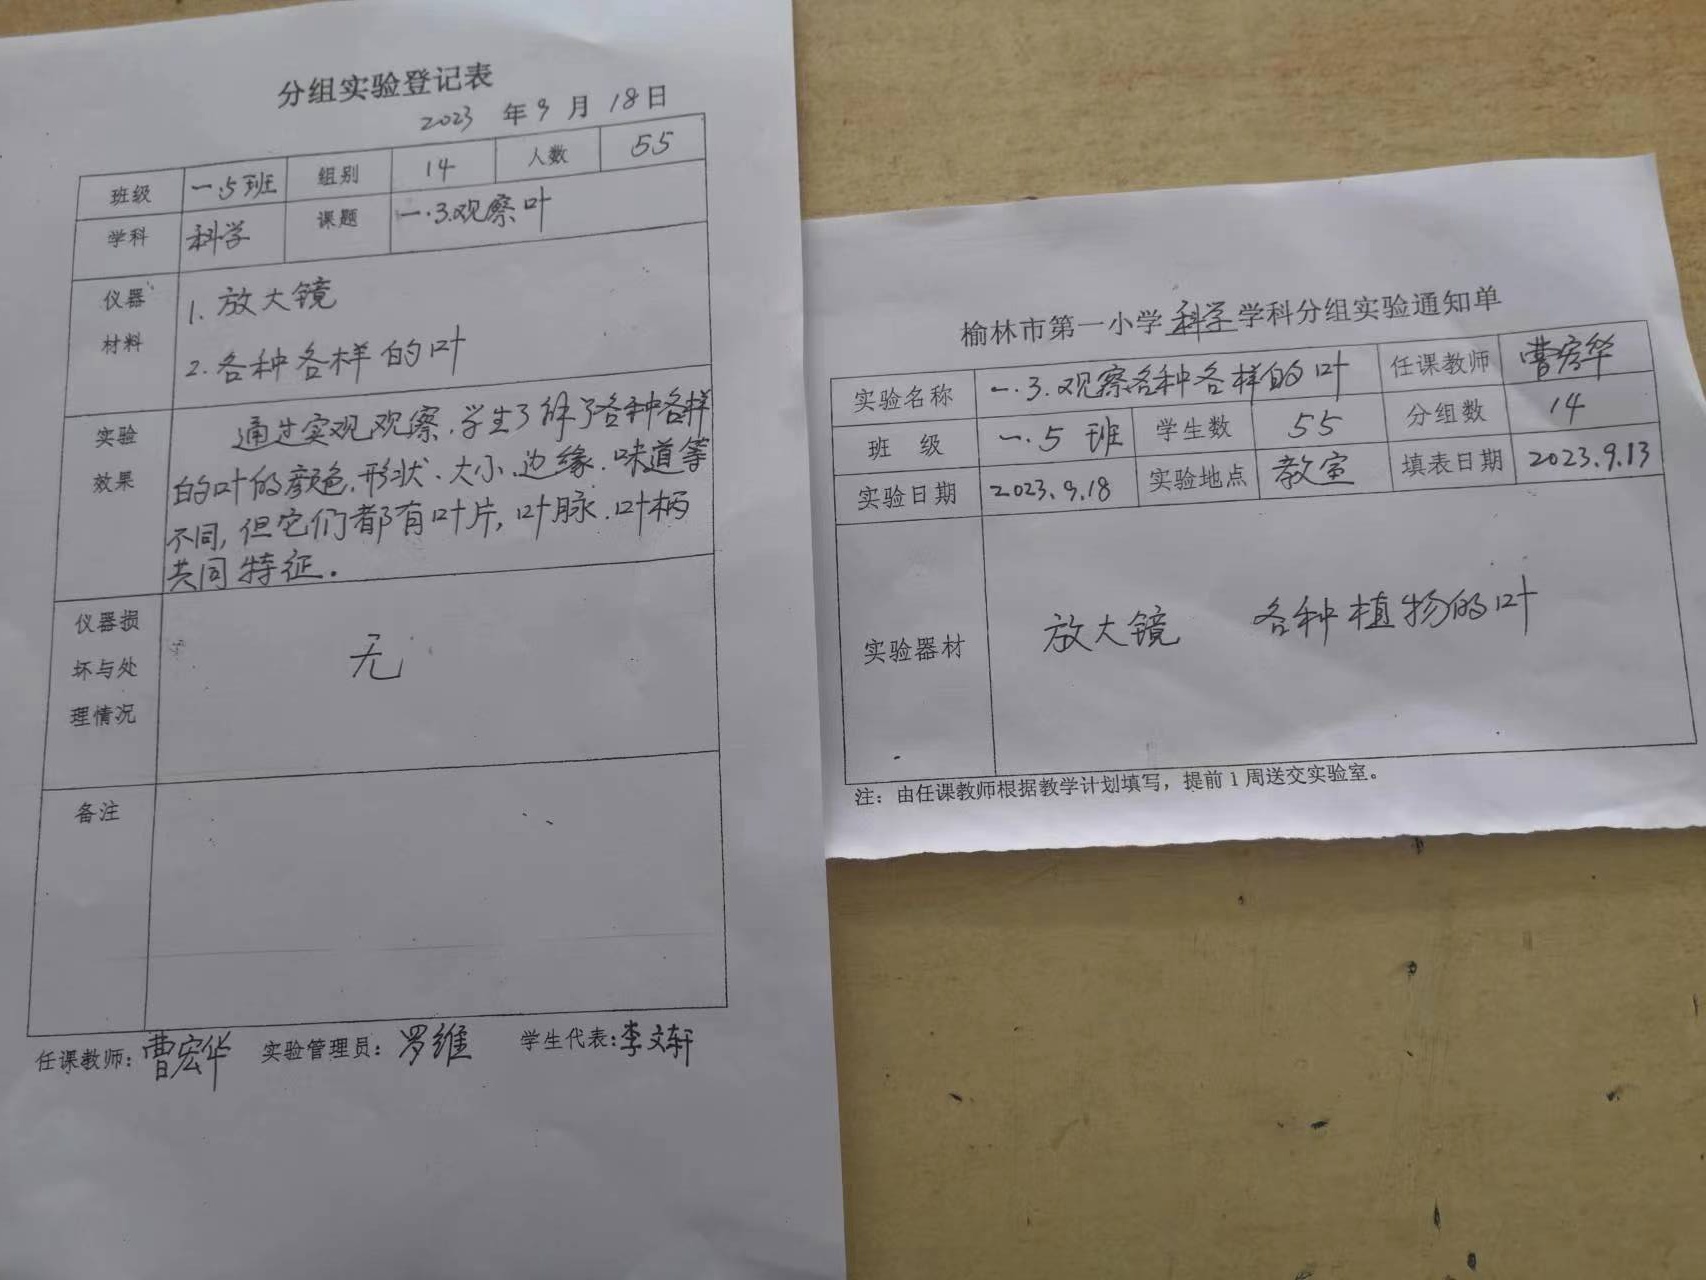 分组实验登记表
2023 年 9 月 18日
班级 一.5班 组别 14 人数 55
学科 科学 课题 一.3.观察叶
仪器
材料
1. 放大镜
2. 各种各样的叶
实验
效果
通过实观观察.学生了解了各种各样
的叶的颜色.形状.大小.边缘.味道等
不同,但它们都有叶片,叶脉.叶柄
共同特征.
仪器损
坏与处
理情况
无
备注
任课教师:曹宏华 实验管理员:罗维 学生代表:李文轩
榆林市第一小学科学学科分组实验通知单
实验名称 一.3.观察各种各样的叶 任课教师 曹宏华
班 级 一.5班 学生数 55 分组数 14
实验日期 2023.9.18 实验地点 教室 填表日期 2023.9.13
实验器材 放大镜 各种植物的叶
注：由任课教师根据教学计划填写，提前1周送交实验室。